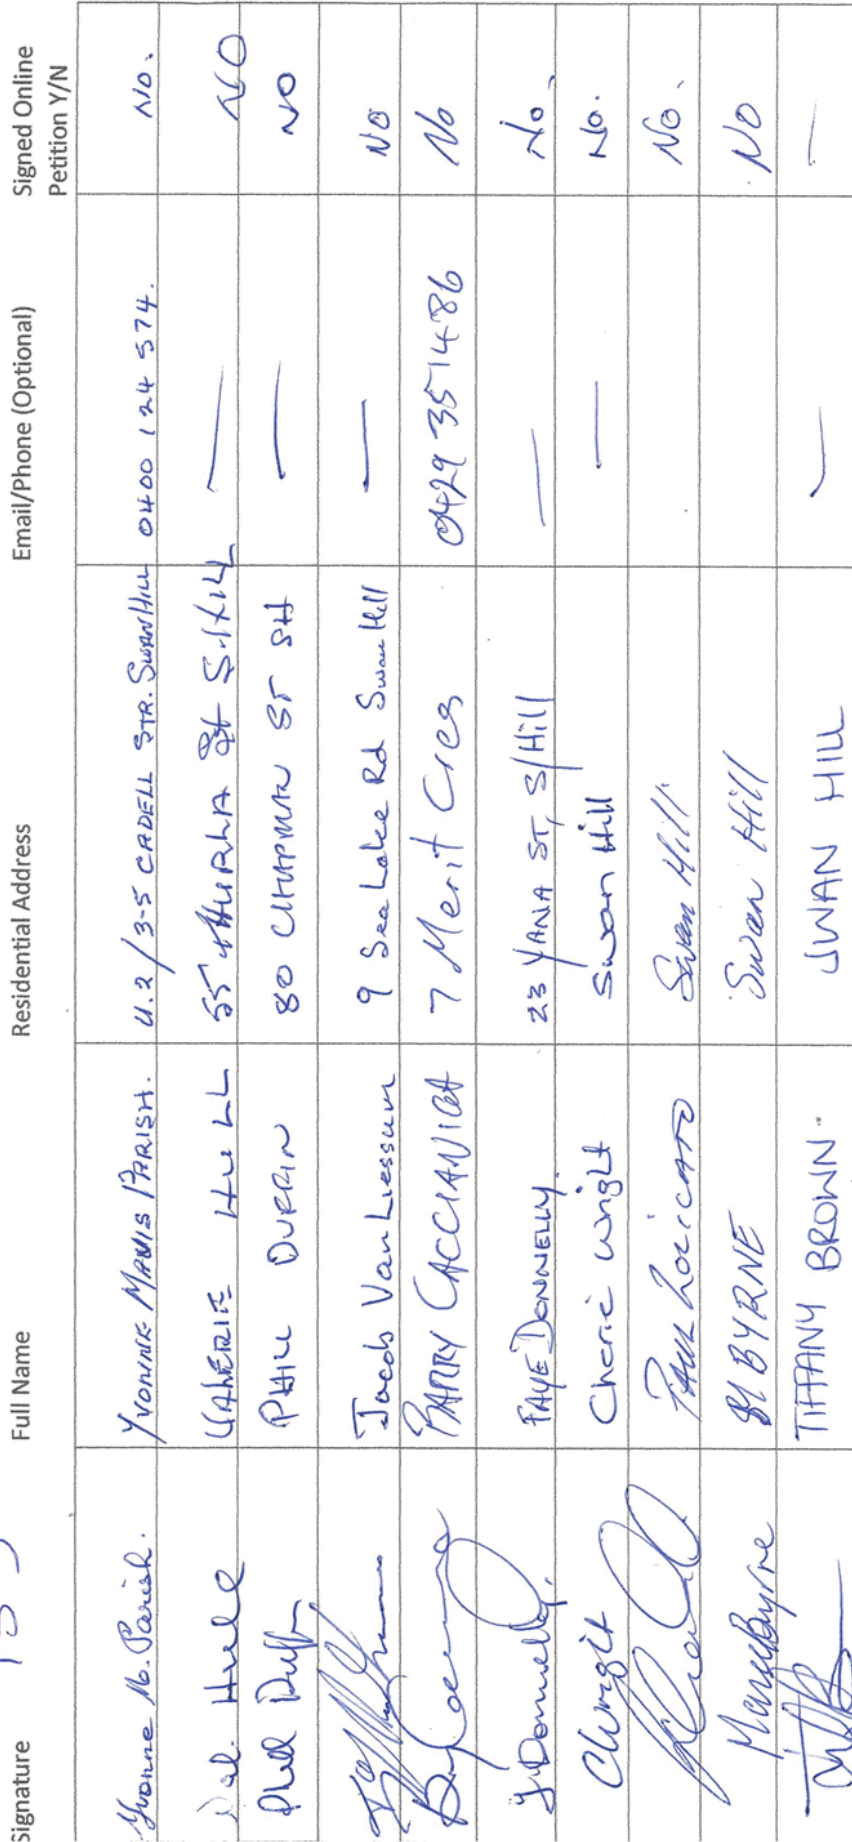 Signature Full Name Residential Address Email/Phone (Optional) Signed Online Petition Y/N
Yvonne M. Parish. YVONNE MAVIS PARISH. U.2/3-5 CADELL STR. SWAN HILL 0400 124 574. NO.
Val. Hull VALERIE HULL 55 ST S/HILL — NO
Phil PHILL 80 CHAPMAN ST SH — NO
Jacob Van Liessum 9 Sea Lake Rd Swan Hill — NO
BARRY CACCIANIGA 7 Merit Cres 0429 351486 No
F Donnelly. FAYE DONNELLY. 23 YANA ST, S/Hill — No.
CWright Cherie Wright Swan Hill — No.
PAUL LOICATO Swan Hill No.
Mary Byrne M BYRNE Swan Hill NO
TIFFANY BROWN. SWAN HILL — —